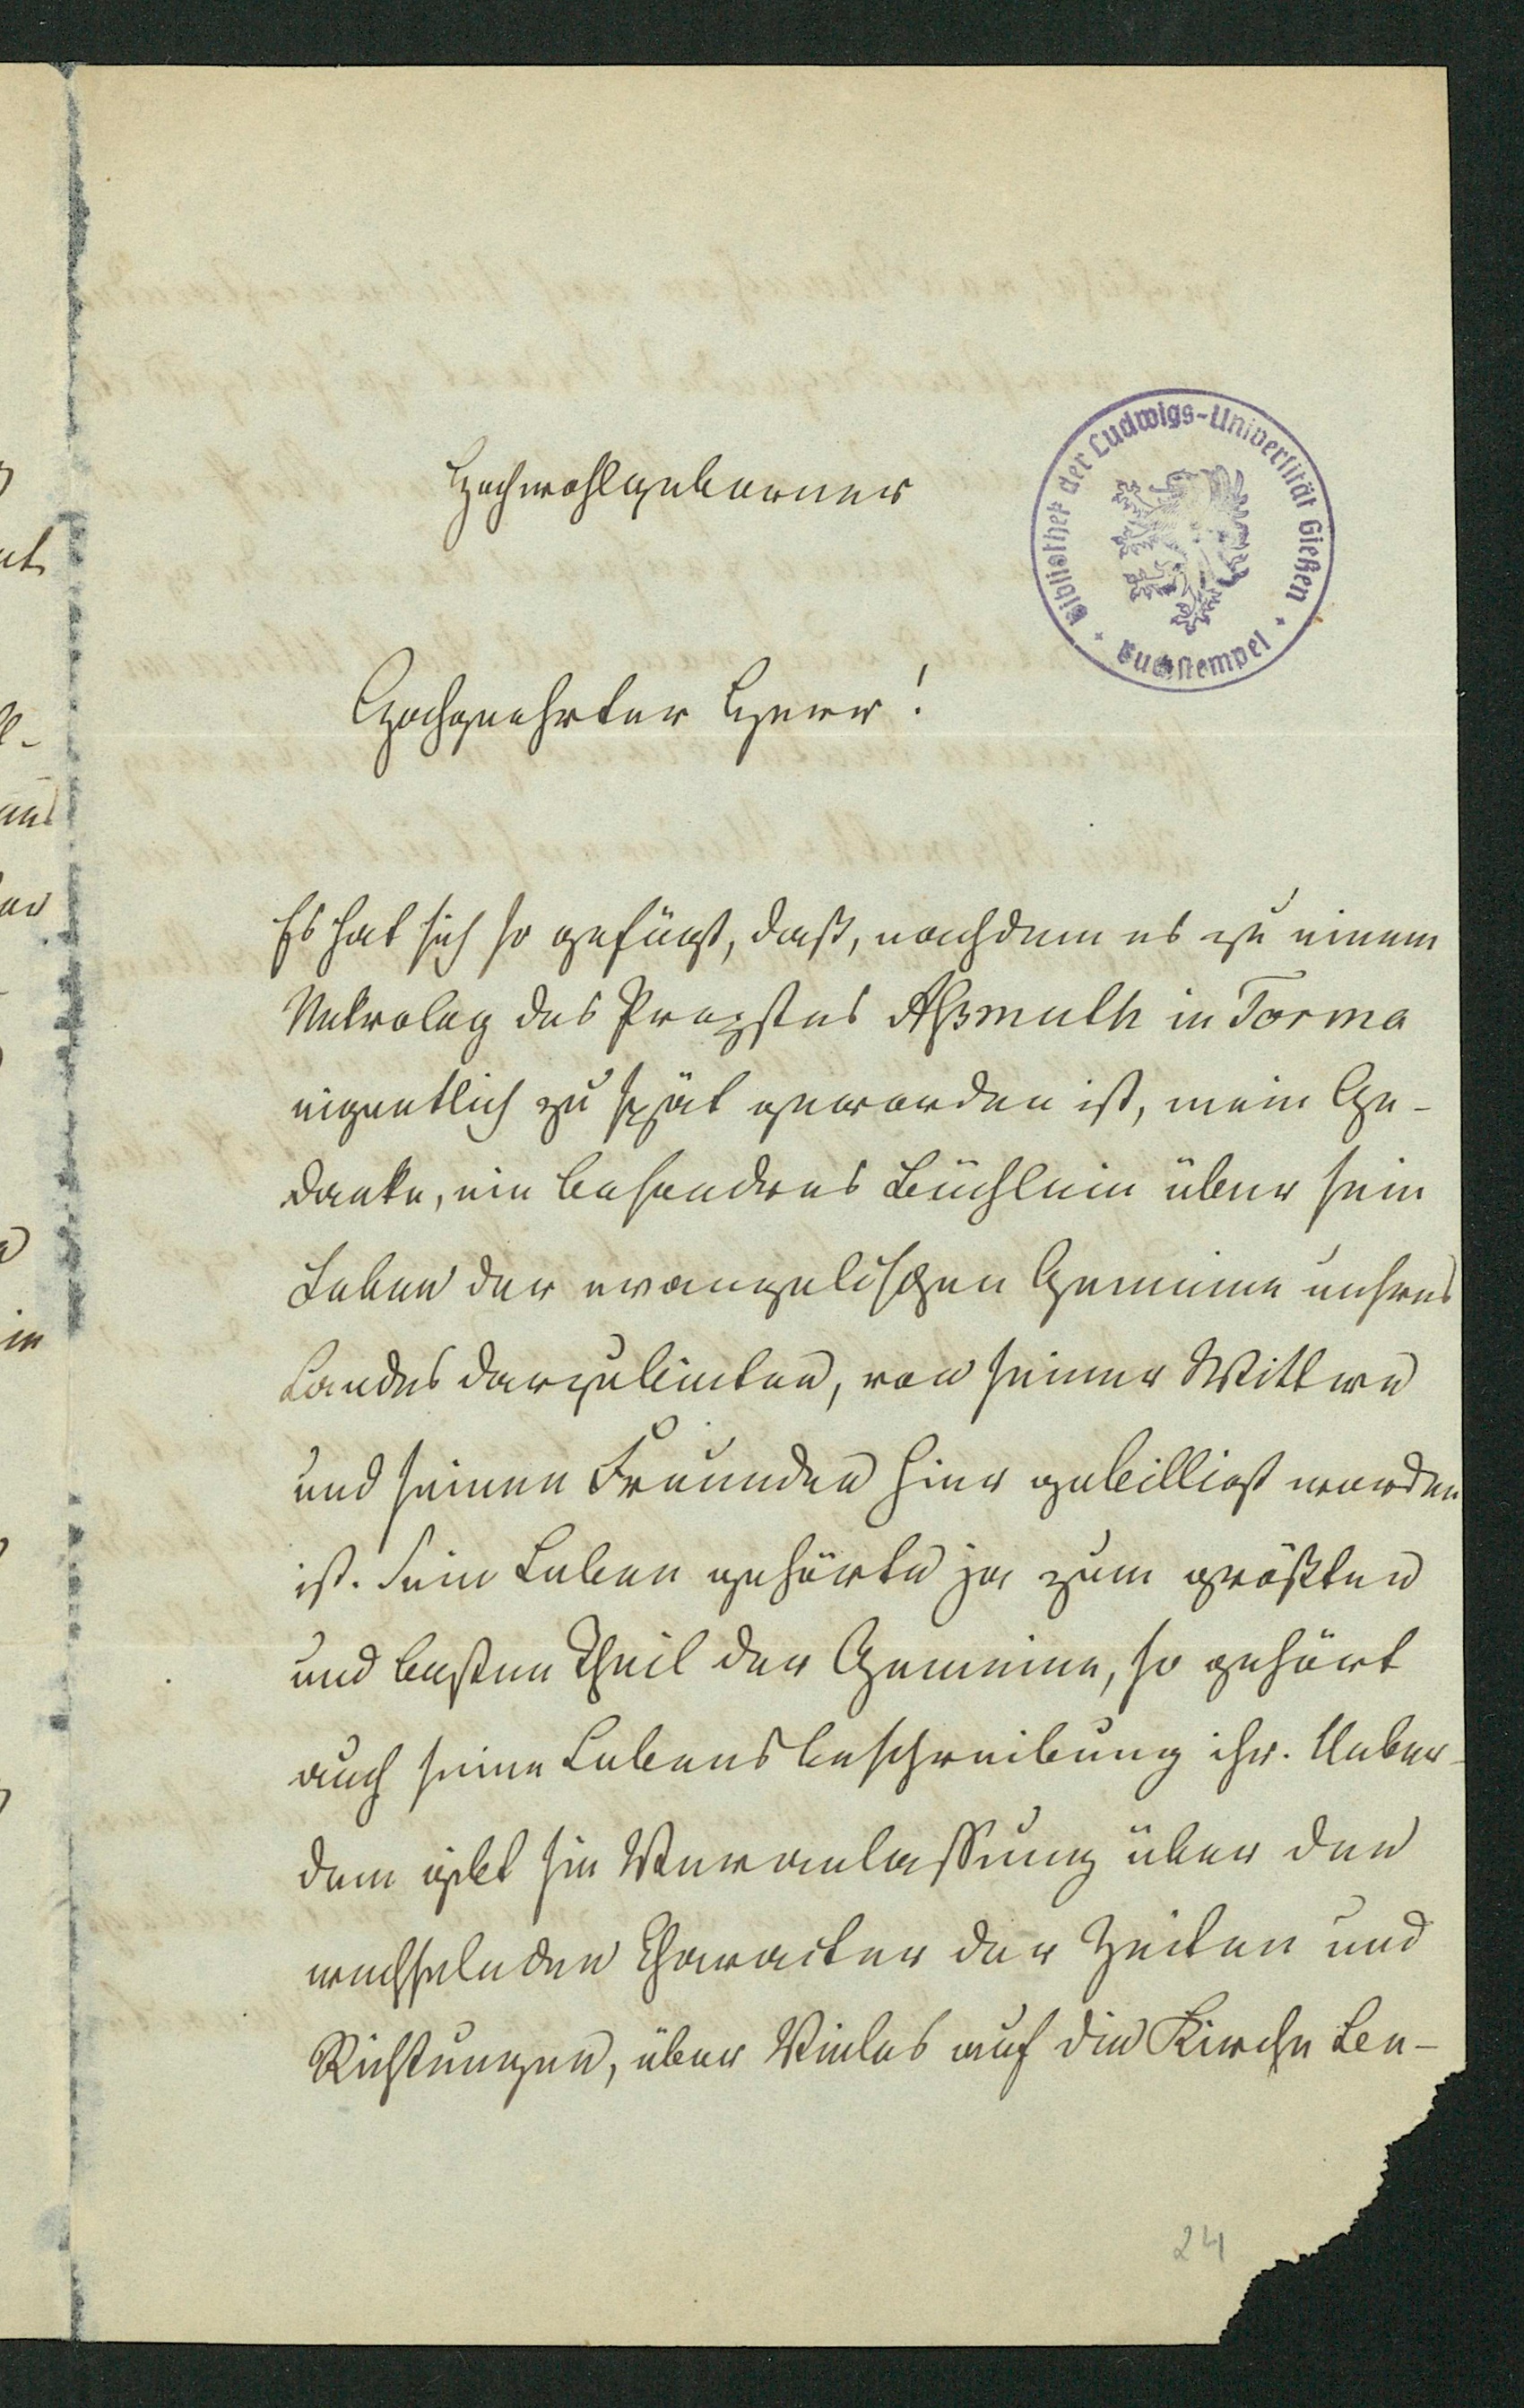 Hochwohlgeborner
Bibliothek der Ludwigs-Universität Gießen
Buchstempel
Hochgeehrter Herr!
Es hat sich so gefügt, daß, nachdem es zu einem
Nekrolog des Propstes Aßmuth in Torma
eigentlich zu spät geworden ist, mein Ge-
danke, ein besondres Büchlein über sein
Leben der evangelischen Gemeine unsres
Landes darzubieten, von seiner Wittwe
und seinen Freunden hier gebilligt worden
ist. Sein Leben gehörte ja zum größten
und besten Theil der Gemeine, so gehört
auch seine Lebensbeschreibung ihr. Ueber-
dem gibt sie Veranlassung über den
wechselnden Character der Zeiten und
Richtungen, über Vieles auf die Kirche Be-
24